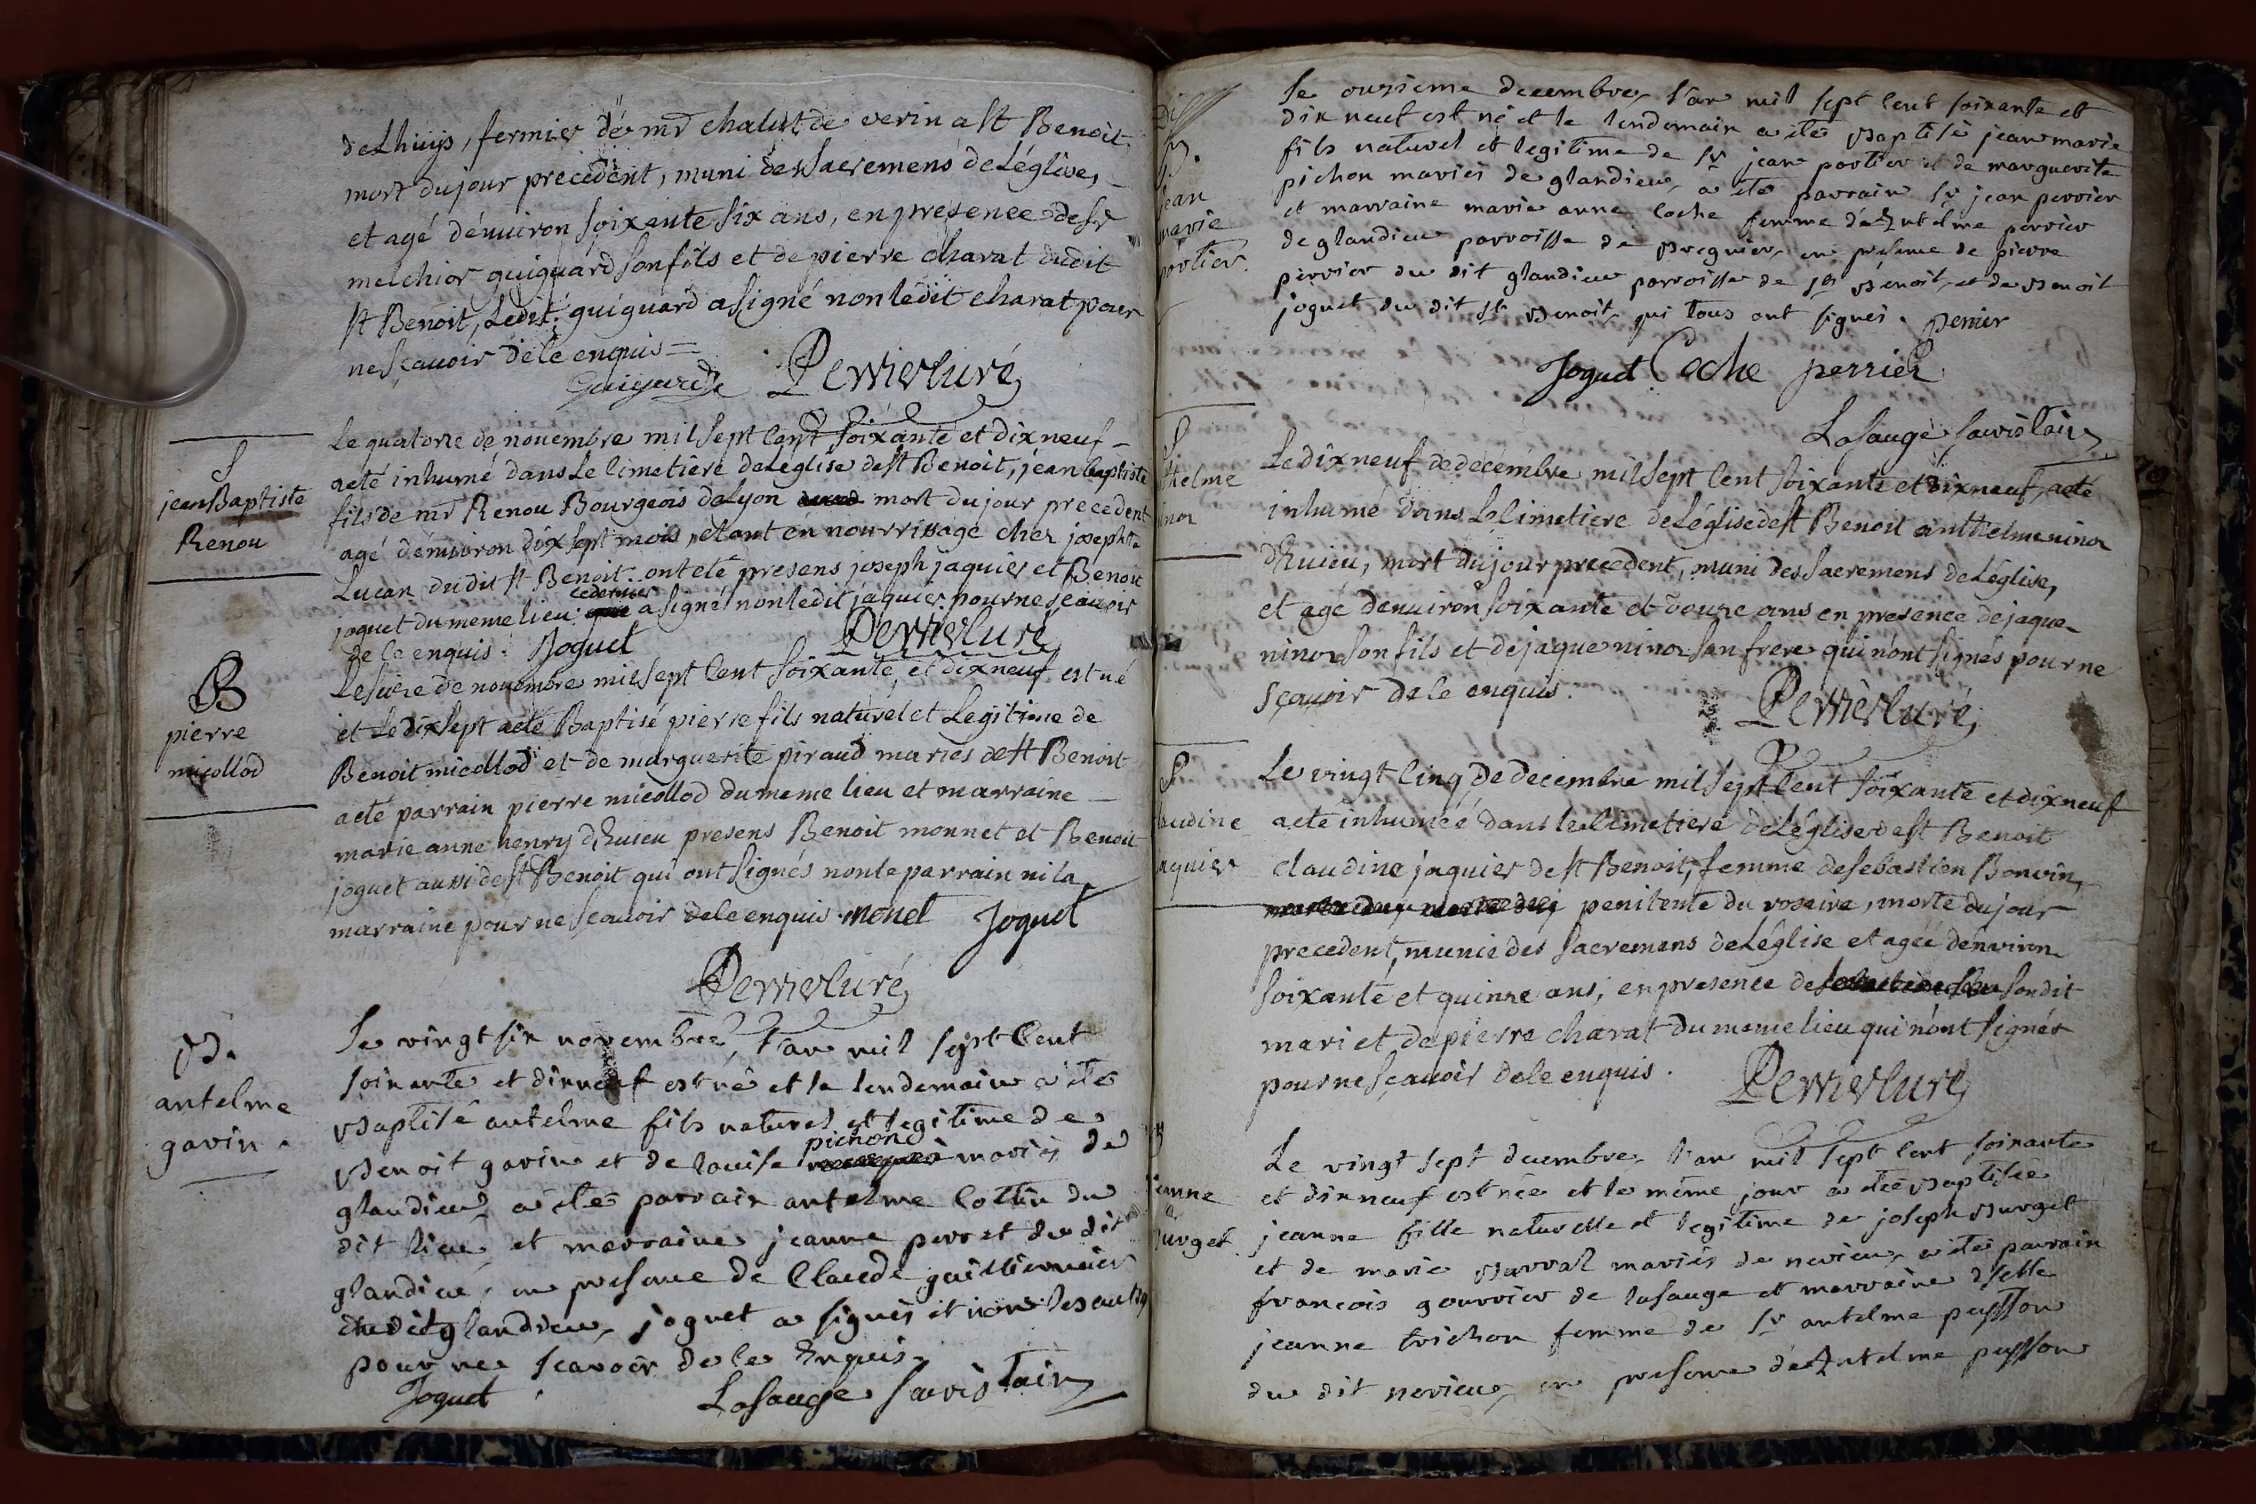 de Lhuys, fermier de mr chalut de verin a st Benoit
mort du jour precedent, muni des sacremens de Léglise,
et agé dénuiron soixante six ans, en presence de sr
melchior guiguard son fils et de pierre charat dudit
st Benoit, Ledit guiguard a signé non ledit charat pour
ne sçauoir de le enquis =
Guiguard Perrier curé
S
jean Baptiste
Renou
Le quatorze de nouembre mil sept cent soixante et dix neuf
a eté inhumé dans Le cimetiere de Léglise de st Benoit, jean baptiste
fils de mr Renou Bourgeois de Lyon mort du jour precedent
agé dénuiron dix sept mois, etant en nourrissage chez joseph
Lucan dudit st Benoit. ont eté presens joseph jaquier et Benoit
joguet du meme lieu cedernier a signé non ledit jaquier pour ne sçauoir
de le enquis. Joguet Perrier curé
B
pierre
micollod
Le seize de nouembre mil sept cent soixante et dix neuf est né
et Le dix sept a eté Baptisé pierre fils naturel et Legitime de
Benoit micollod et de marguerite piraud mariés de st Benoit
a eté parrain pierre micollod du meme lieu et marraine
marie anne henry d'Euieu presens Benoit monnet et Benoit
joguet aussi de st Benoit qui ont signés non le parrain ni la
marraine pour ne sçauoir de le enquis. monet Joguet
Perrier curé
B.
antelme
gavin.
Le vingt six novembre, l'an mil sept cent
soixante et dix neuf est né et le lendemain a été
Baptisé antelme fils naturel et legitime de
Benoit gavin et de louise pichon mariés de
glandieu, a été parrain antelme cottin du
dit lieu et marraine jeanne perret du dit
glandieu, en presence de Claude
du dit glandieu, joguet a signés et non les autres
pour ne scavoir de le Enquis.
Joguet Lasauge sacristain
B.
jean
marie
portier.
Le onzieme decembre, l'an mil sept cent soixante et
dix neuf est né et le lendemain a été Baptisé jean marie
fils naturel et legitime de sr jean portier et de marguerite
pichon mariés de glandieu, a été parrain sr jean perrier
et marraine marie anne coche femme d'Antelme perrier
de glandieu parroisse de Bregnier, en presence de pierre
perrier du dit glandieu parroisse de st Benoit, et de Benoit
joguet du dit st Benoit, qui tous ont signés. perrier
Joguet Coche perrier
Lasauge sacristain
S
thelme
ninor
Le dix neuf de decembre mil sept cent soixante et dix neuf, a eté
inhumé dans Le cimetiere de Léglise de st Benoit anthelme ninor
d'Euieu, mort du jour precedent, muni des sacremens de Léglise,
et agé denuiron soixante et douze ans en presence de jaque
ninor son fils et de jaque ninor son frere qui n'ont signés pour ne
sçauoir de le enquis.
Perrier curé
S
laudine
aquier
Le vingt cinq de decembre mil sept cent soixante et dix neuf
a eté inhumée dans le cimetiere de Léglise de st Benoit
claudine jaquier de st Benoit, femme de sebastien Bonvin,
penitente du rosaire, morte du jour
precedent, munie des sacremens de Léglise et agée denviron
soixante et quinze ans, en presence de son dit
mari et de pierre charat du meme lieu qui n'ont signés
pour ne sçauoir de le enquis.
Perrier curé
B
jeanne
Burget
Le vingt sept decembre, l'an mil sept cent soixante
et dix neuf est née et le même jour a été Baptisée
jeanne fille naturelle et legitime de joseph Burget
et de marie Barral mariés de nerieu, a été parrain
francois gourrier de lasauge et marraine dselle
jeanne trichon femme de sr antelme peysson
du dit nerieu, en presence d'Antelme peysson